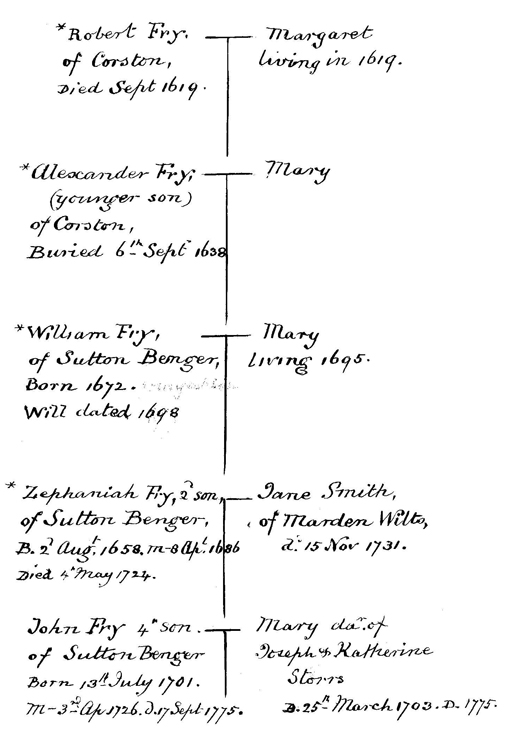 *Robert Fry.
of Corston,
Died Sept 1619.
Margaret
living in 1619.
*Alexander Fry,
(younger son)
of Corston,
Buried 6th Sept 1638
Mary
*William Fry,
of Sutton Benger,
Born 1672.
Will dated 1698
Mary
living 1695.
*Zephaniah Fry, 2d son,
of Sutton Benger,
B. 2d Augt. 1658. m-8 Apl. 1686
Died 4th May 1724.
Jane Smith,
of Marden Wilts,
d. 15 Nov 1731.
John Fry 4th son.
of Sutton Benger
Born 13th July 1701.
m-3rd Ap 1726. d. 17 Sept 1775.
Mary dar. of
Joseph & Katherine
Storrs
B. 25th March 1703. D. 1775.